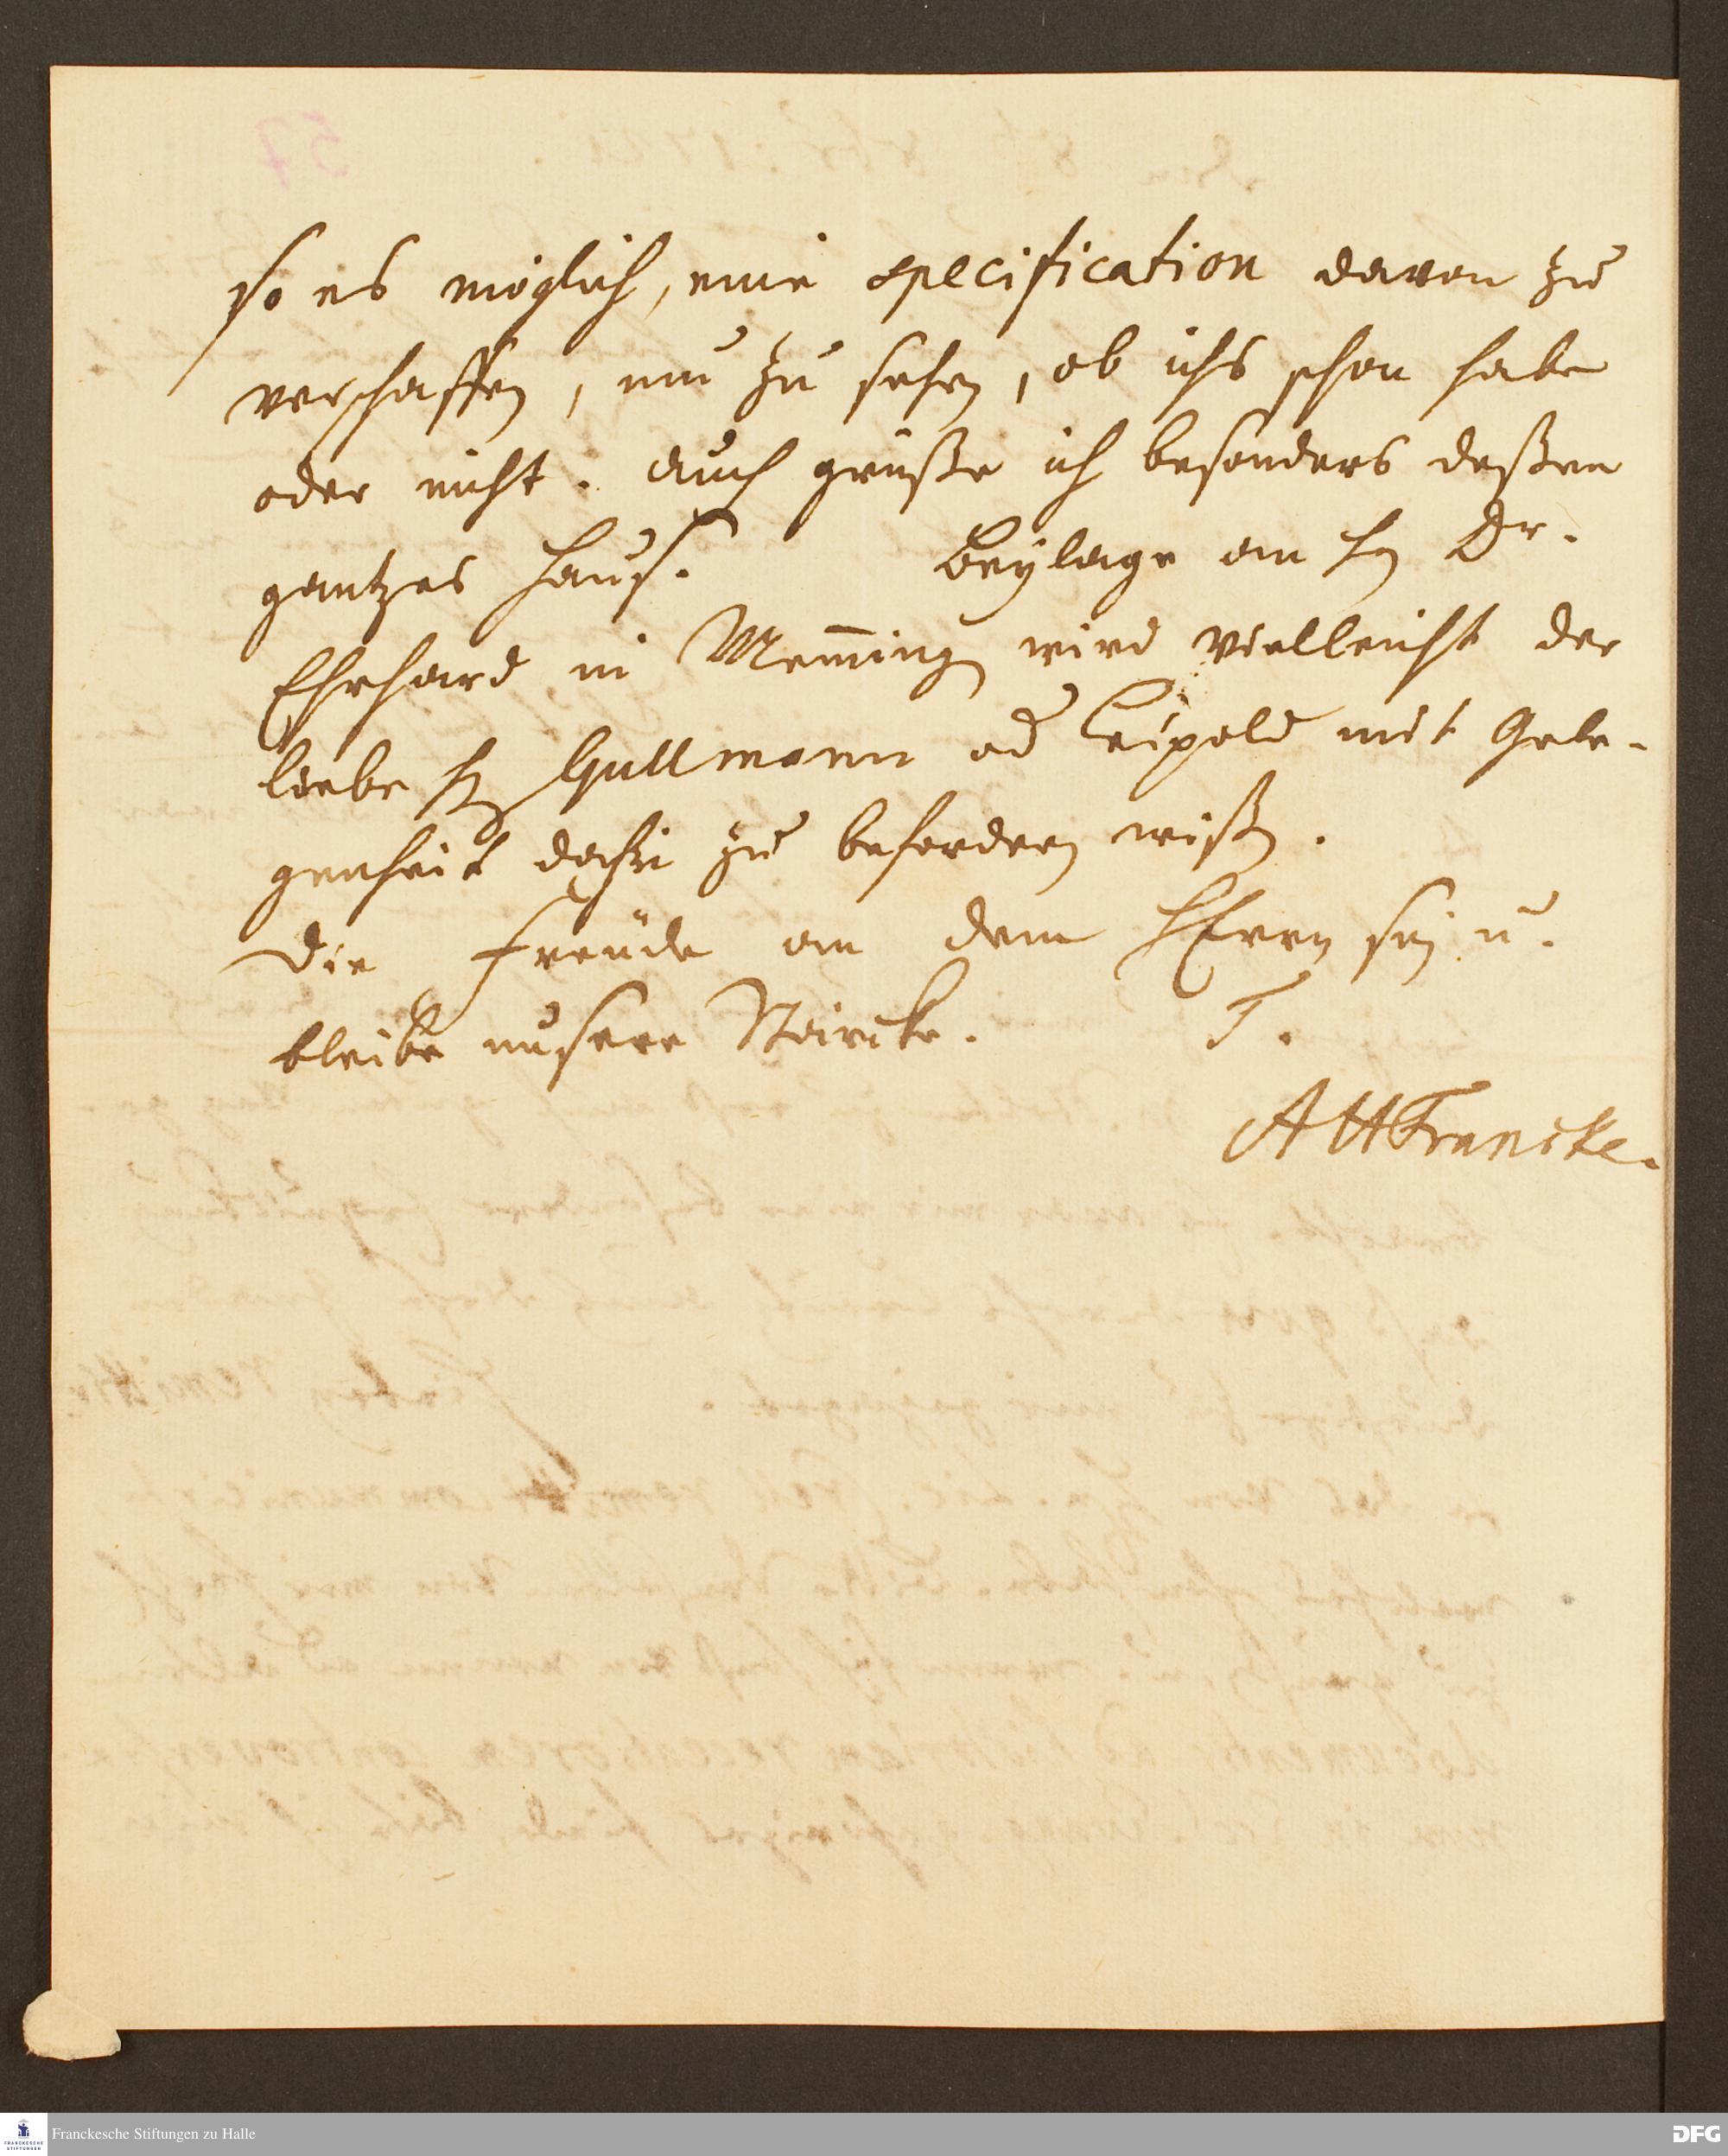 so es möglich, eine specification davon zu
verschaffen, um zu sehen, ob ichs schon habe
oder nicht. Auch grüße ich besonders deßen
gantzes Hauß. Beylage an Hn Dr.
Ehrhard in Mem̅ingen wird vielleicht der
liebe Hr Hullmann od Leipold mit Gele-
genheit dahin zu befordern wißen.
Die Freude an dem HErrn sey u.
bleibe unsere Stärcke. T.
AHFrancke.
Franckesche Stiftungen zu Halle
DFG